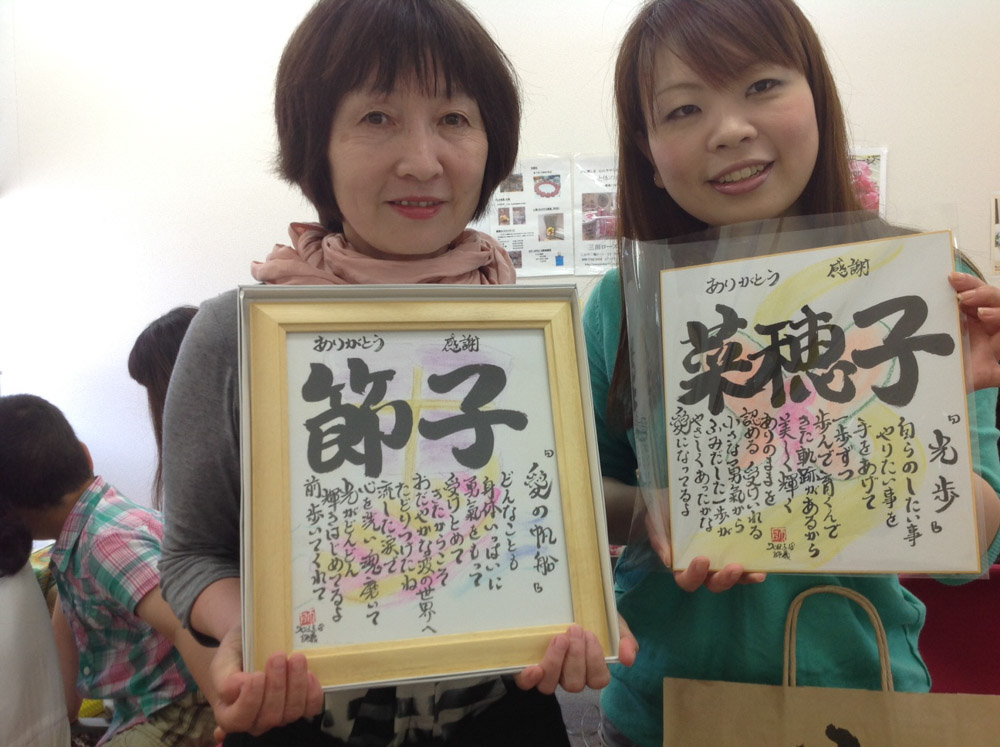 ありがとう 感謝
節子
『愛の帆船』
どんなことも
身体いっぱいに
勇氣をもって
受けとめて
きたからこそ
おだやかな波の世界へ
たどりつけたね
流した涙で
心を洗い 魂磨いて
光がどんどん
輝きはじめてるよ
前へ歩いてくれて
ありがとう 感謝
菜穂子
『光歩』
自らのしたい事
やりたい事を
手をあげて
一歩ずつ
歩んで 育くんで
きた軌跡があるから
美しく輝く
ありのままを
認める 受けいれる
小さな勇氣から
ふみだした一歩が
やさしくあったかな
愛になってるよ